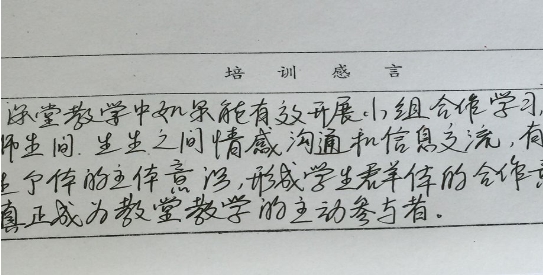 培训感言
课堂教学中如果能有效开展小组合作学习,
师生间.生生之间情感沟通和信息交流,有
生个体的主体意识,形成学生君羊体的合作意
真正成为教堂教学的主动参与者。